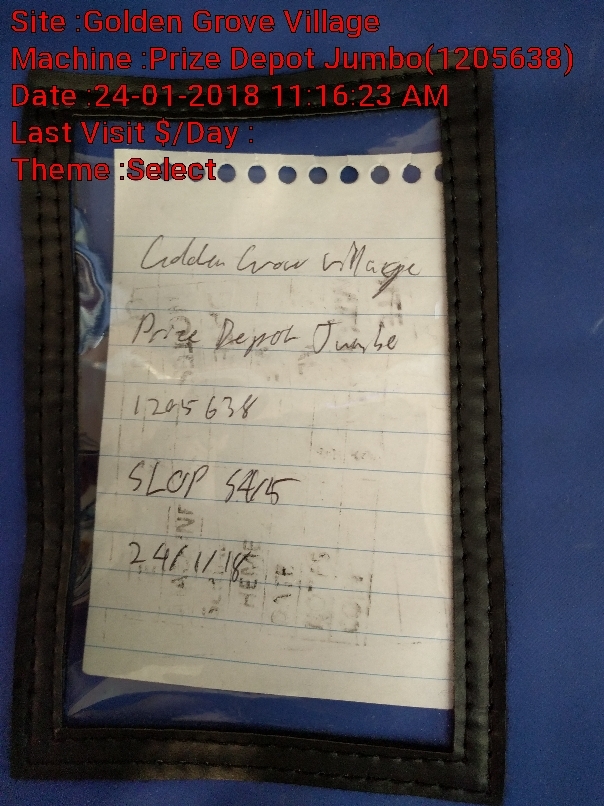 Site :Golden Grove Village
Machine :Prize Depot Jumbo(1205638)
Date :24-01-2018 11:16:23 AM
Last Visit $/Day :
Theme :Select
Golden Grove Village
Prize Depot Jumbo
1205638
24/1/18